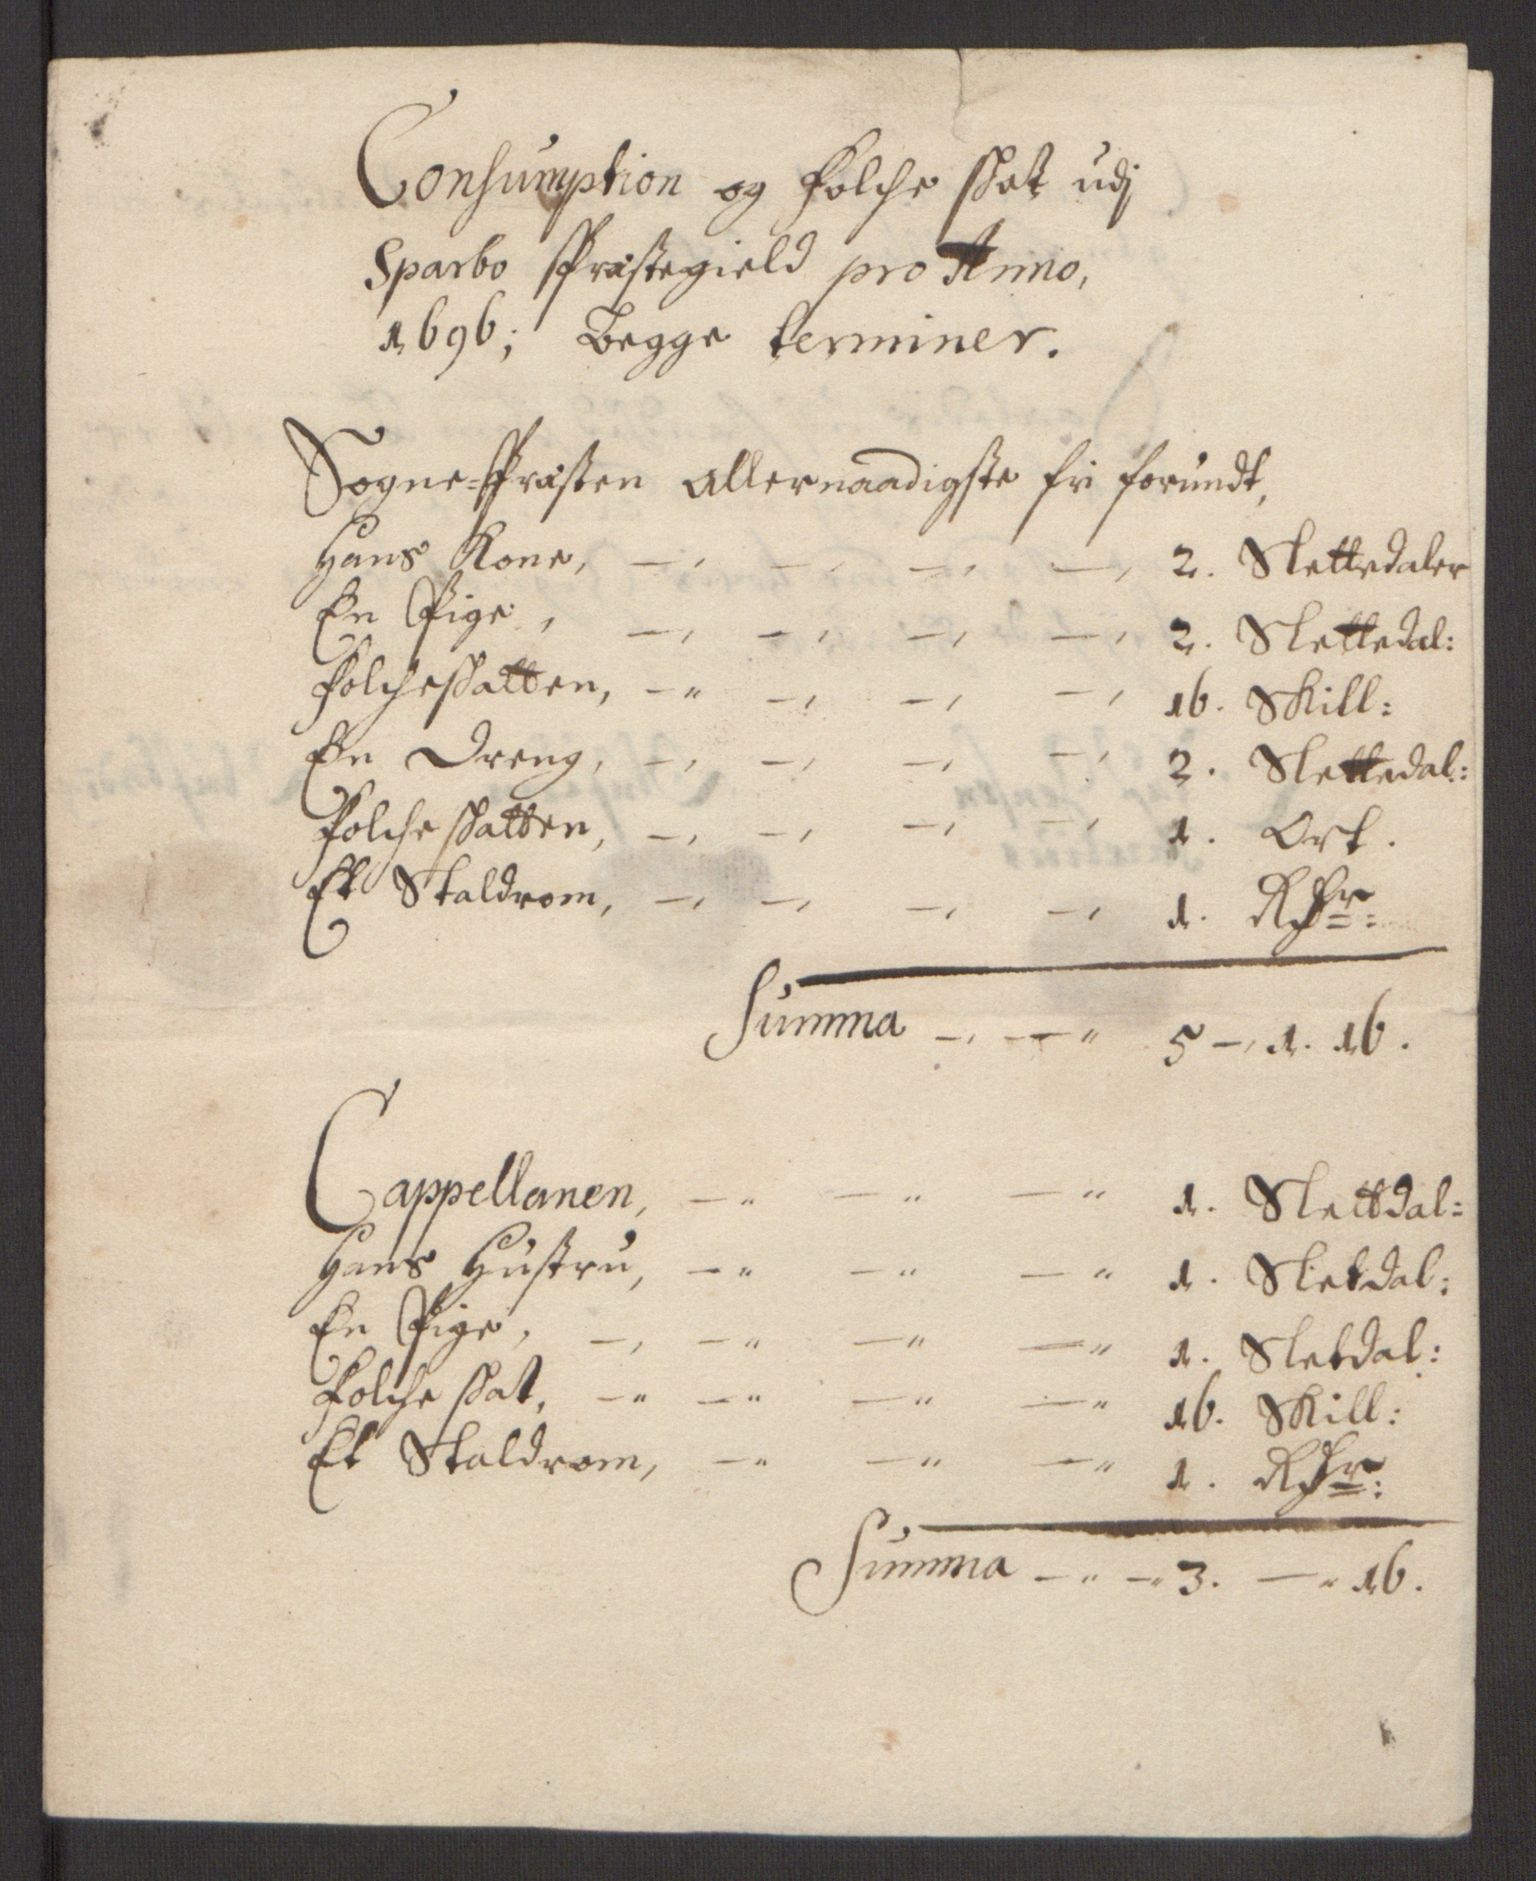 Consumption og Folche Skat udj
Sparbo Præstegield pro Anno,
1696; Begge terminer.
Sogne-Præsten allernaadigste fri forundt,
Hans Kone, 2. Slettedaler
En Pige, 2. Slettedal:
Folcheskatten, 16. Skill:
En Dreng, 2. Slettedal:
Folcheskatten, 1. Ort.
Et Staldrom, 1. Rdr:
Summa 5 - 1. 16.
Cappellanen, 1. Slettdal:
Hans Hustru, 1. Sletdal:
En Pige, 1. Sletdal:
Folche Skat, 16. Skill:
Et Staldrom, 1. Rdr:
Summa 3. 16.